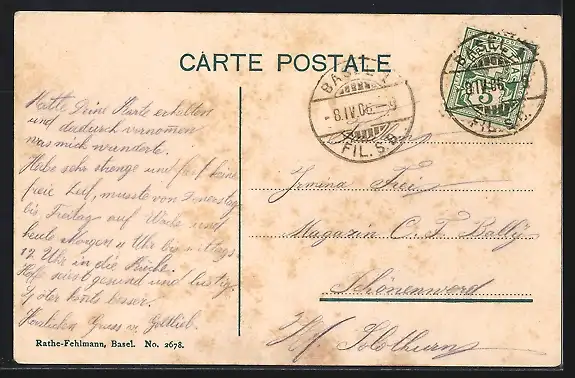 CARTE POSTALE
BASEL 1
-8.IV.06.-9
FIL. S.B.
BASEL 1
-8.IV.06.-9
FIL. S.B.
5
Hatte Deine Karte erhalten
und dadurch vernommen
was mich wunderte.
Habe sehr strenge und fast keine
freie Zeit, musste von Donerstag
bis Freitag auf Wache und
heute Morgen 4 Uhr bis mittags
12 Uhr in die Küche.
Hoffe seist gesund und lustig.
Herzlichen Gruss v. Gottlieb.
Irména Frei
Magazin C. F. Bally
Schönenwerd
Kt. Solothurn
Rathe-Fehlmann, Basel. No. 2678.